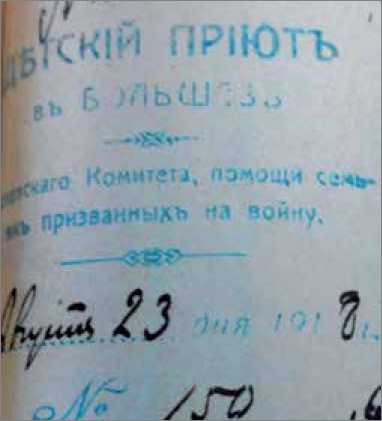 ДѢТСКІЙ ПРІЮТЪ
въ БОЛЬШЕВѢ
Комитета, помощи семь-
призванныхъ на войну.
Августа 23 дня 1918 г.
№ 150